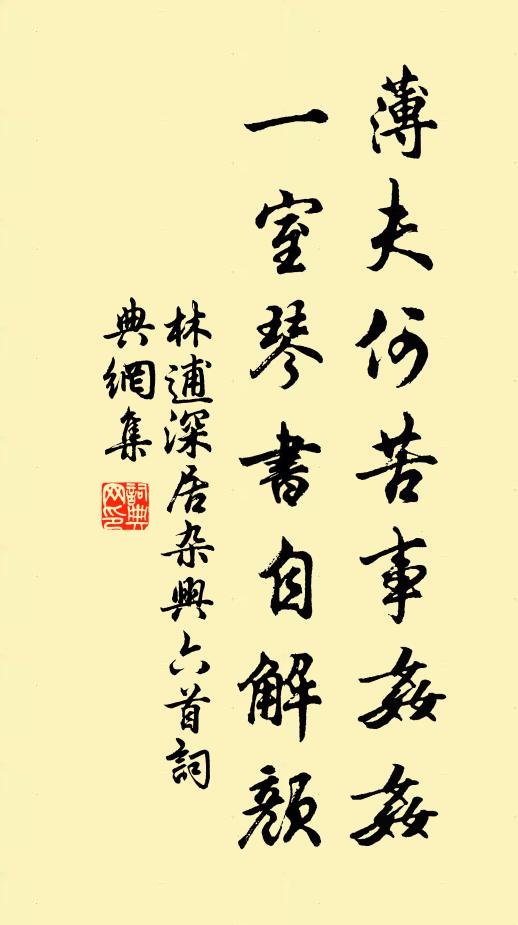 薄夫何苦事姦姦
一室琴書自解顏
林逋深居杂興六首詞
典網集
詞典网印